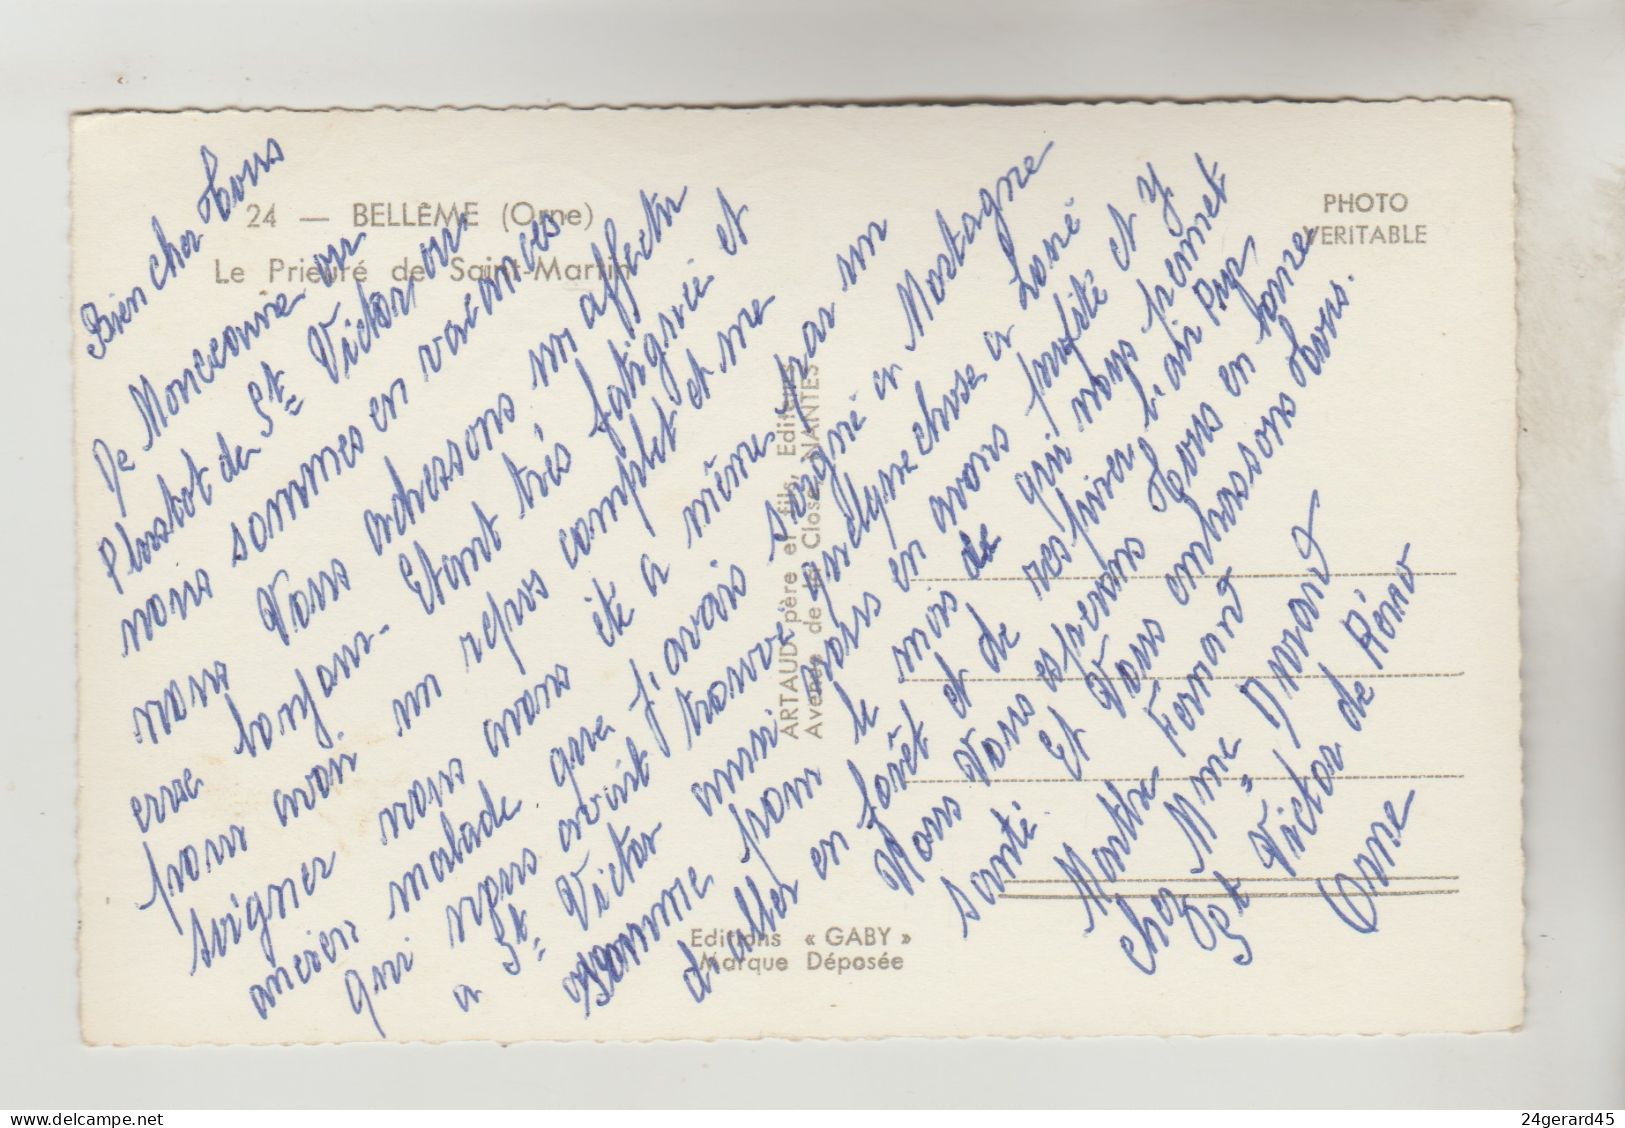 24 — BELLÊME (Orne)
Le Prieuré de Saint-Martin
PHOTO
VERITABLE
ARTAUD père et fils, Editeurs
Avenue de la Close, NANTES
Editions « GABY »
Marque Déposée
Bien cher tous
De Monceaux ou
Plustot de St Victor ou
nous sommes en vacances
nous Vous adressons un affectu
eux bonjour. Etant très fatiguée et
pour avoir un repos complet et me
soigner nous avons été a même par un
ancien malade que j'avais soigné a Mortagne
qui nous avait trouvé quelque chose a Loué
a St Victor aussi nous en avons profité et y
sommes pour le mois de qui nous permet
d'aller en forêt et de respirer l'air Pur
Nous Vous espérons tous en bonne
santé Et Vous embrassons tous.
Marthe Fernand
chez Mme Durand
St Victor de Réno
Orne
24gerard45